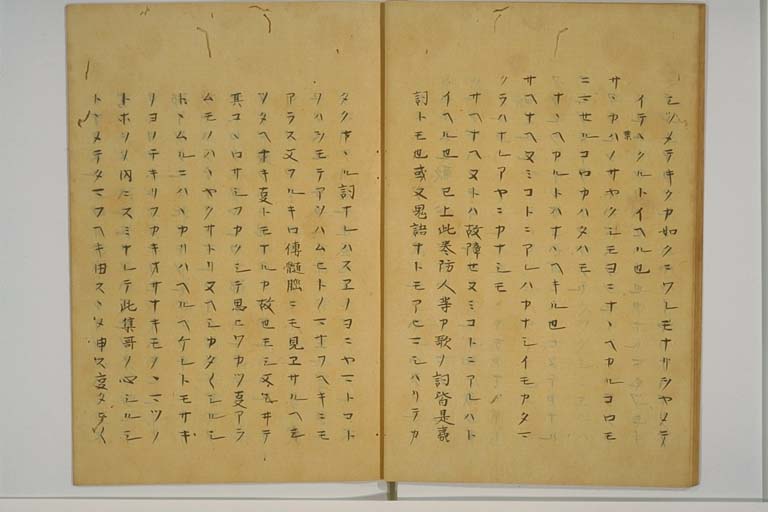 シツメテキクカ如クニワレモナリシヤメテ
イテヽクルトイヘル也
サヽカハノサヤクシモヨニナヽヘカルコロモ
ニマセルコロカハタハモ
ナヽヘカルトハナヽヘキル也
サヘナヘヌミコトニアレハカナシイモカタマ
クラハナレアヤニカナシモ
サヘナヘヌトハ故障せヌミコトニアレハト
イヘル也已上此巻防人等カ歌ノ詞皆是
詞トモ也或又鬼詰ナトモアヒマシハリテカ
タクナヽル詞ナレハスヱノヨニヤマトコト
ノハシモテアソハムヒトノマナフヘキニモ
アラス又フルキ口傳髄脳ニモ見エサルヘキ
ツタヘナキ事トモナルカ故也モシ又スヰテ
其コヽロサシフカクシテ思ヒワカツ事アラ
ムモノハヽヤクサトリヌヘシカタ〱シルシ
トヽムルニハヽカリハヘルヘケレトモサキ
ノヨノチキリフカキオサナキモノヽマツノ
トホソノ内ニスミナレテ此集哥ノ心シルシ
トヽメテタマフヘキ由スヽメ申ス事タ